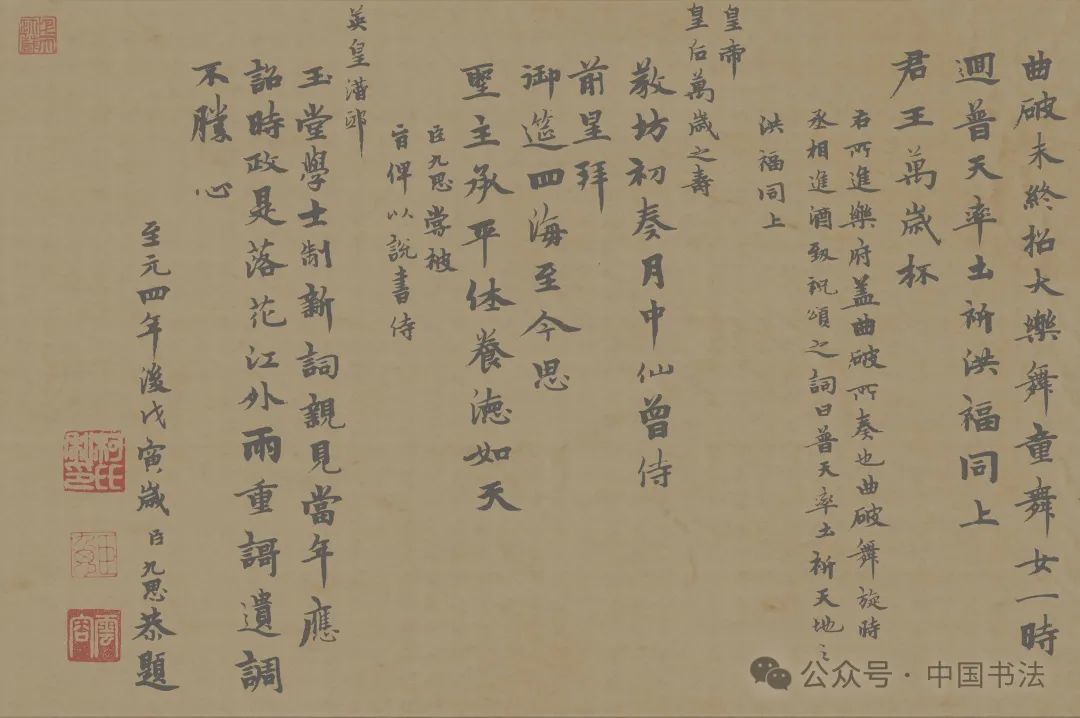 曲破未終招大樂舞童舞女一時
迴普天率土祈洪福同上
君王萬歲杯
右所進樂府蓋曲破所奏也曲破舞旋時
丞相進酒致祝頌之詞曰普天率土祈天地之
洪福同上
皇帝
皇后萬歲之壽
教坊初奏月中仙曾侍
前星拜
御筵四海至今思
聖主承平体養德如天
臣九思嘗被
旨俾以說書侍
英皇潛邸
玉堂學士制新詞親見當年應
詔時政是落花江外雨重謌遺調
不勝心
至元四年後戊寅歲臣九思恭題
柯氏敬仲
公众号·中国书法